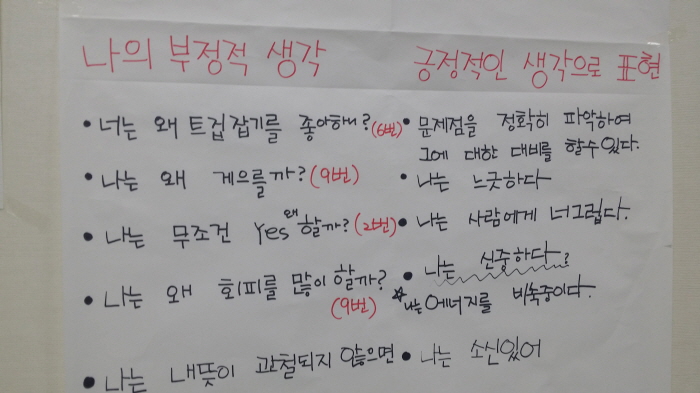 나의 부정적 생각
긍정적인 생각으로 표현
• 너는 왜 트집잡기를 좋아해? (6번)
• 문제점을 정확히 파악하여
그에 대한 대비를 할수있다.
• 나는 왜 게으를까? (9번)
• 나는 느긋하다
• 나는 무조건 yes 왜 할까? (2번)
• 나는 사람에게 너그럽다.
• 나는 왜 회피를 많이 할까?
(9번)
• 나는 신중하다?
☆나는 에너지를 비축중이다.
• 나는 내뜻이 관철되지 않으면
• 나는 소신있어